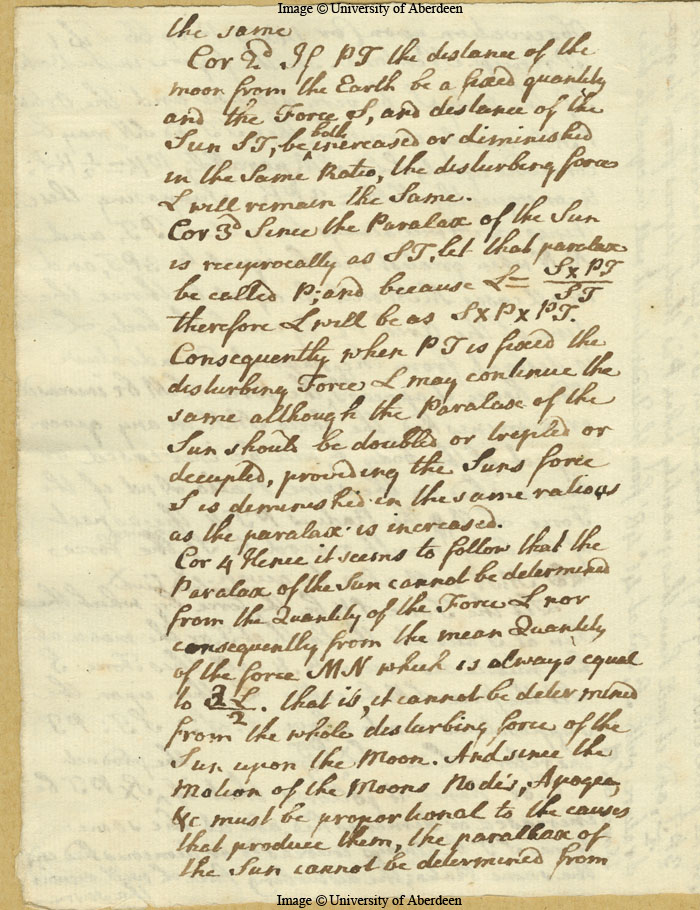 Image © University of Aberdeen
the same
Cor 2d If PT the distance of the
moon from the Earth be a fixed quantity
and the Force S, and distance of the
Sun ST, be both increased or diminished
in the Same Ratio, the disturbing force
L will remain the Same.
Cor 3d Since the Paralax of the Sun
is reciprocally as ST, let that paralax
be called P; and because L = S x PT / ST
therefore L will be as S x P x PT.
Consequently when PT is fixed the
disturbing Force L may continue the
same although the Paralax of the
Sun should be doubled or tripled or
decupled, providing the Suns force
S is diminished in the same ratio
as the paralax is increased.
Cor 4 Hence it seems to follow that the
Paralax of the Sun cannot be determined
from the Quantity of the Force L nor
consequently from the mean Quantity
of the force MN which is always equal
to 3L / 2. that is, it cannot be determined
from the whole disturbing force of the
Sun upon the Moon. And since the
Motion of the Moons Nodes, Apogee,
&c must be proportional to the causes
that produce them, the parallax of
the Sun cannot be determined from
Image © University of Aberdeen